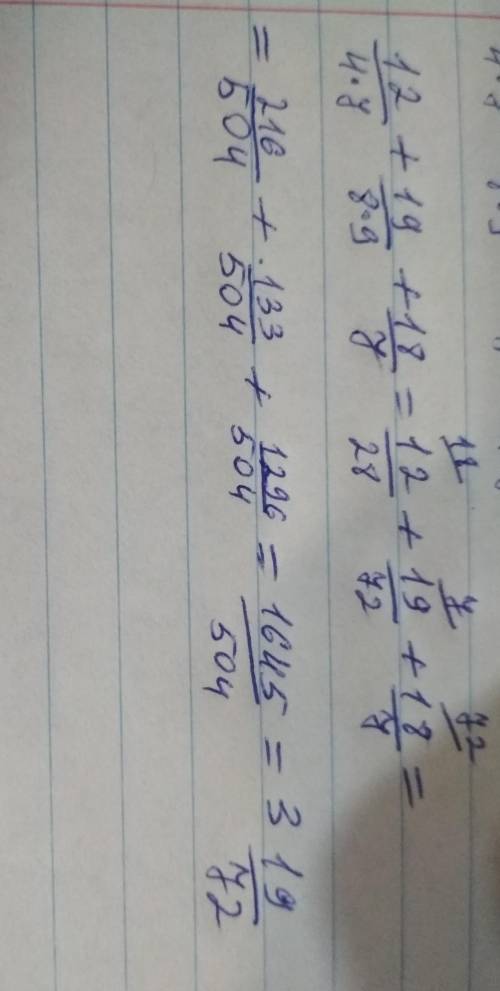 12/4·7 + 19/8·9 + 18/7 = 12/28 18/ + 19/72 7/ + 18/7 72/ =
= 216/504 + 133/504 + 1296/504 = 1645/504 = 3 19/72